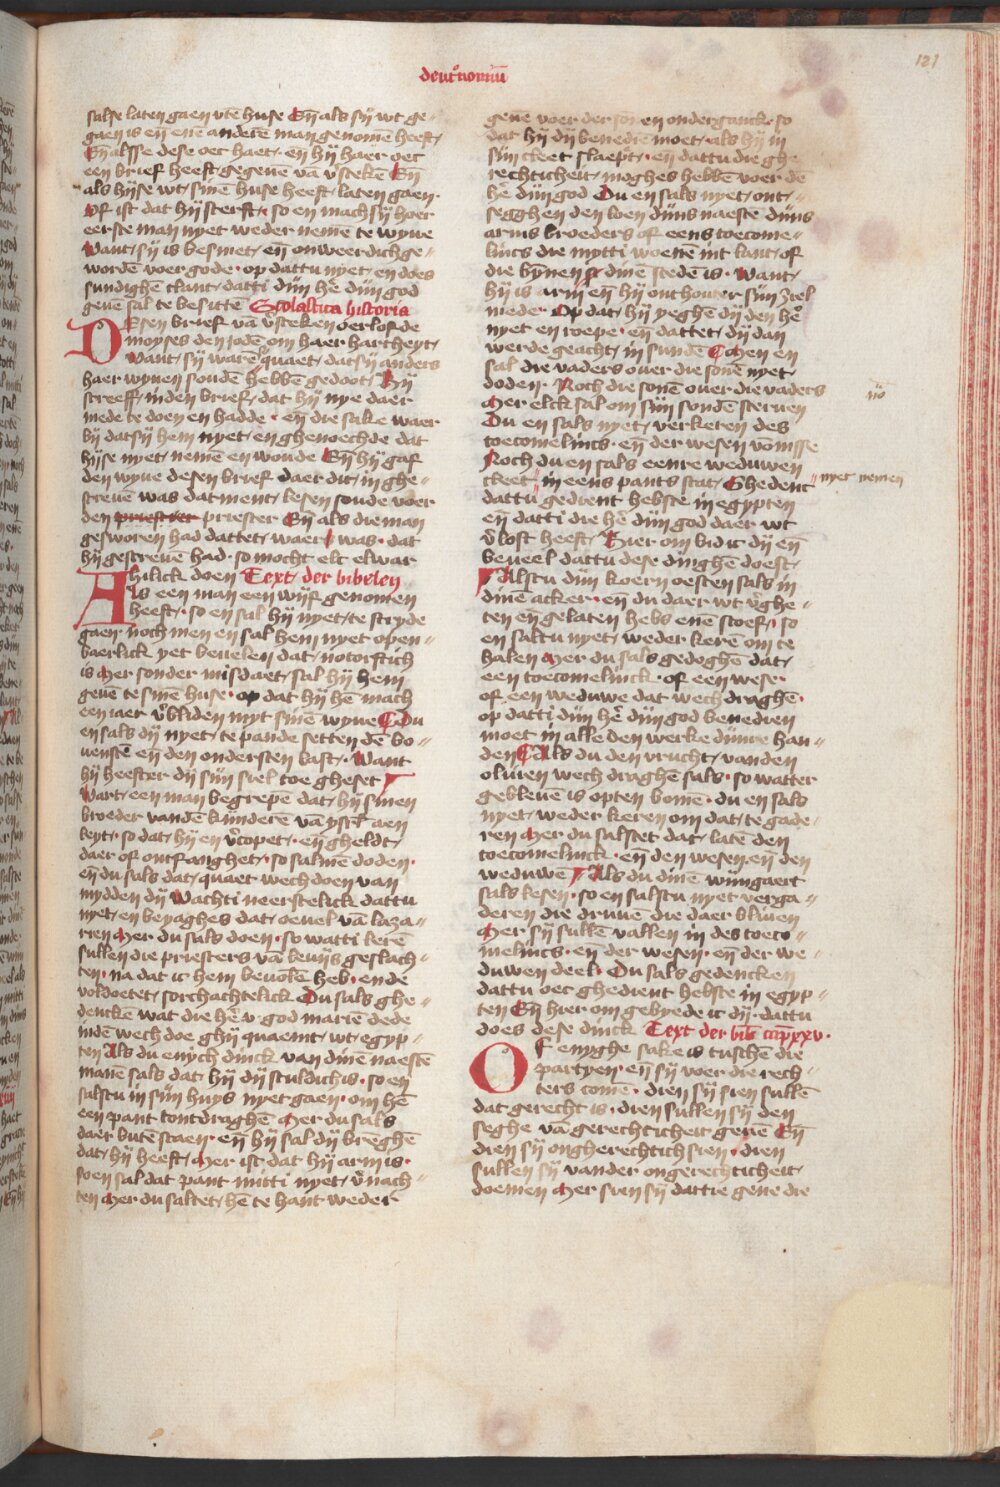 deut'nomiū
121
salse laten gaen vtē huse En̄ als sy wt ge=
gaen is en̄ enē anderē man genomē heeft
En̄ alsse dese oec haet en̄ hij haer oec
een brief heeft gegeuē vā v'stekē En̄
als hijse wt sinē huse heeft laten gaen
Of ist dat hij sterft so en mach sij hoer
eerste man nyet weder nemē te wyue
Want sij is besmet en̄ onweerdich ge=
wordē voer gode op dattu nyet en does
sundighē tlant datti dijn hē dijn god
geuē sal te besittē Scolastica historia
Desen brief vā v'steken oerlofde
moyses den jodē om haer hartheyt
Want sij warē quaet dat sij anders
haer wyuen soudē hebbē gedoot Hij
screeff inden brief dat hij nye daer
mede te doen en hadde en̄ die sake waer
bij dat sij hem nyet en ghenoechde dat
hijse nyet nemē en woude En̄ hij gaf
den wyue desen brief daer dit in ghe=
screuē was dat ment lesen soude voer
den priester priester En̄ als die man
gesworen had dattet waer was dat
hij gescreuē had so mocht elc elwar
hilick doen Text der bibelen
Als een man een wijf genomen
heeft so en sal hij nyet te stryde
gaen noch men en sal hem nyet open=
baerlick yet beuelen dat notorftich
is Mer sonder misdaet sal hij hem
geuē te sinē huse op dat hij hē mach
een iaer v'bliden myt sinē wyue Du
en sals dij nyet te pande setten dē bo=
uenstē en̄ den ondersten last Want
hij heefter dij sijn siel toe gheset
Wart een man begrepē dat hij sinen
broeder vandē kijnderē vā ysrl' aen
leyt so dat hij en v'copet en̄ gheldt
daer of ontfanghet so salmē doden
en̄ du sals dat quaet wech doen van
mydden dij Wachti neerstelick dattu
nyet en beyaghes dat oeuel vā laza=
rien Mer du sals doen so watti lerē
sullen die priesters vā leuijs geslach=
ten na dat ic hem beuolē heb ende
voldoetet sorchachtelick Du sals ghe=
denckē wat die hē v god mariē dede
indē wech doe ghij quaemt wt egyp=
ten Als du enych dinck van dinē naestē
manē sals dat hij dij sculdich is so en
salstu in sijn huys nyet gaen om hē
een pant tontdraghē Mer du sals
daer butē staen en̄ hij sal dij brēghē
dat hij heeft Mer ist dat hij arm is
soen sal dat pant mitti nyet v'nach=
ten Mer du saltet hē te hant weder
geuē voer der son en ondergangk so
dat hij dij benediē moet als hij in
sijn cleet slaept en̄ dattu die ghe
rechticheit moghes hebbē voer dē
hē dijn god Du en sals nyet ont=
segghen den loen dijns naestē dijns
arms broeders of eens toecome=
lincs die mytti woenē int lant of
die bynnen dinē stedē is Want
hij is arm en̄ hij onthouter sijn ziel
mede Op dat hij yeghē dij den hē
nyet en roepe en̄ dattet dij dan
werde geacht in sundē Men en
sal die vaders ouer die sonē nyet
doden Noch die sonē ouer die vaders
Mer elck sal om sijn sondē steruen
Du en sals nyet verkeren des
toecomelincs en̄ der wesen vōnisse
Noch du en sals eenre weduwen
cleet in eens pants stat Ghedenct
nyet nemen
dattu gedient hebste in egypten
en̄ datti die hē dijn god daer wt
v'lost heeft Hier om bid ic dij en̄
beueel dattu dese dinghē doest
Alstu dijn koern oesten sals in
dinē acker en̄ du daer wt v'ghe=
ten en̄ gelaten hebs enē scoef so
en saltu nyet weder kerē om te
halen Mer du sals gedoghē dat
een toecomelinck of een wese
of een weduwe dat wech draghē
op datti dijn hē dijn god benedien
moet in alle den werke dijnre han=
den Als du den vrucht vanden
oliuen wech draghē sals so watter
gebleuē is opten bomē du en sals
nyet weder keren om dat te gade=
ren Mer du salstet dat latē den
toecomelinck en̄ den wesen en̄ den
weduwē Als du dinē wijngaert
sals lesen so en salstu nyet verga=
deren die druuē die daer bliuen
Mer sij sullē vallen in des toeco=
melincs en̄ der wesen en̄ der we=
duwen deel Du sals gedencken
dattu oec ghedient hebste in egyp=
ten En̄ hier om gebyede ic dij dattu
does dese dinck Text der bib' cap xxv
Of enyghe sake is tuschē die
partyen en̄ sij voer die rech=
ters comē dien sij sien sullē
dat gerecht is dien sullen sij den
seghe vā gerechticheit geuē En̄
dien sij ongherechtich sien dien
sullen sij vander ongerechticheit
doemen Mer sien sij dat die gene die